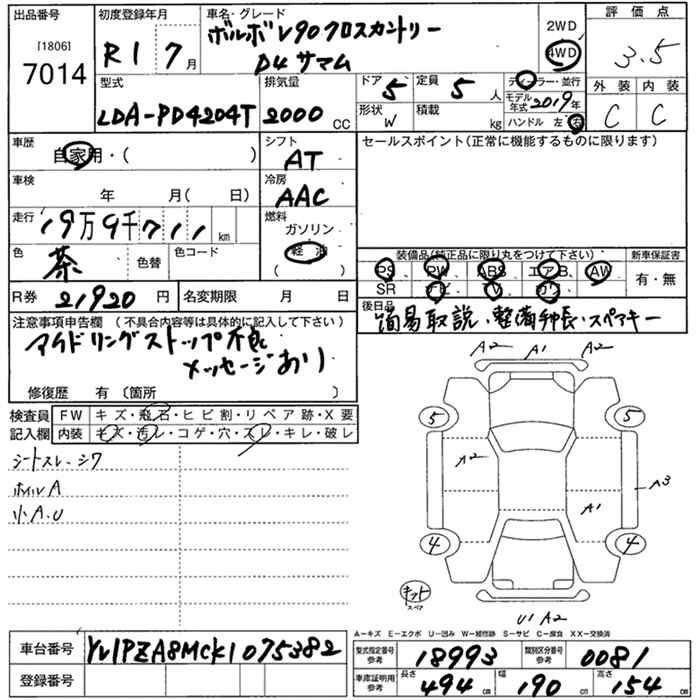 出品番号
[1806]
7014
初度登録年月
R1 7月
車名・グレード
ボルボV90クロスカントリー
D4サマム
2WD
4WD
評価点
3.5
型式
LDA-PD4204T
排気量
2000 CC
ドア 5
定員 5 人
形状 W
積載 kg
ディーラー・並行
モデル年式 2019年
ハンドル 左 右
外装 内装
C C
車歴
自家用・( )
シフト
AT
セールスポイント(正常に機能するものに限ります)
車検
年 月( 日)
冷房
AAC
走行
19万9千711 km
燃料
ガソリン
軽油
( )
色
茶
色替
色コード
装備品(純正品に限り丸をつけて下さい)
PS PW ABS エアB. AW
SR ナビ TV カワ
新車保証書
有・無
R券 21920 円
名変期限 月 日
後日品
簡易取説・整備手帳・スペアキー
注意事項申告欄 (不具合内容等は具体的に記入して下さい)
アイドリングストップ不良
メッセージあり
修復歴 有〔箇所 〕
検査員記入欄
FW キズ・飛石・ヒビ割・リペア跡・X要
内装 キズ・汚レ・コゲ・穴・スレ・キレ・破レ
シートスレ・シワ
ホイルA
小A.U
A2 A1 A2
5 5
A2
A3
A1
4 4
キット
スペア
U1 A2
A−キズ E−エクボ U−凹み W−補修跡 S−サビ C−腐食 XX−交換済
車台番号
YV1PZA8MCK1075382
登録番号
型式指定番号 参考 18993
類別区分番号 参考 0081
車庫証明用 参考
長さ 494 cm
幅 190 cm
高さ 154 cm